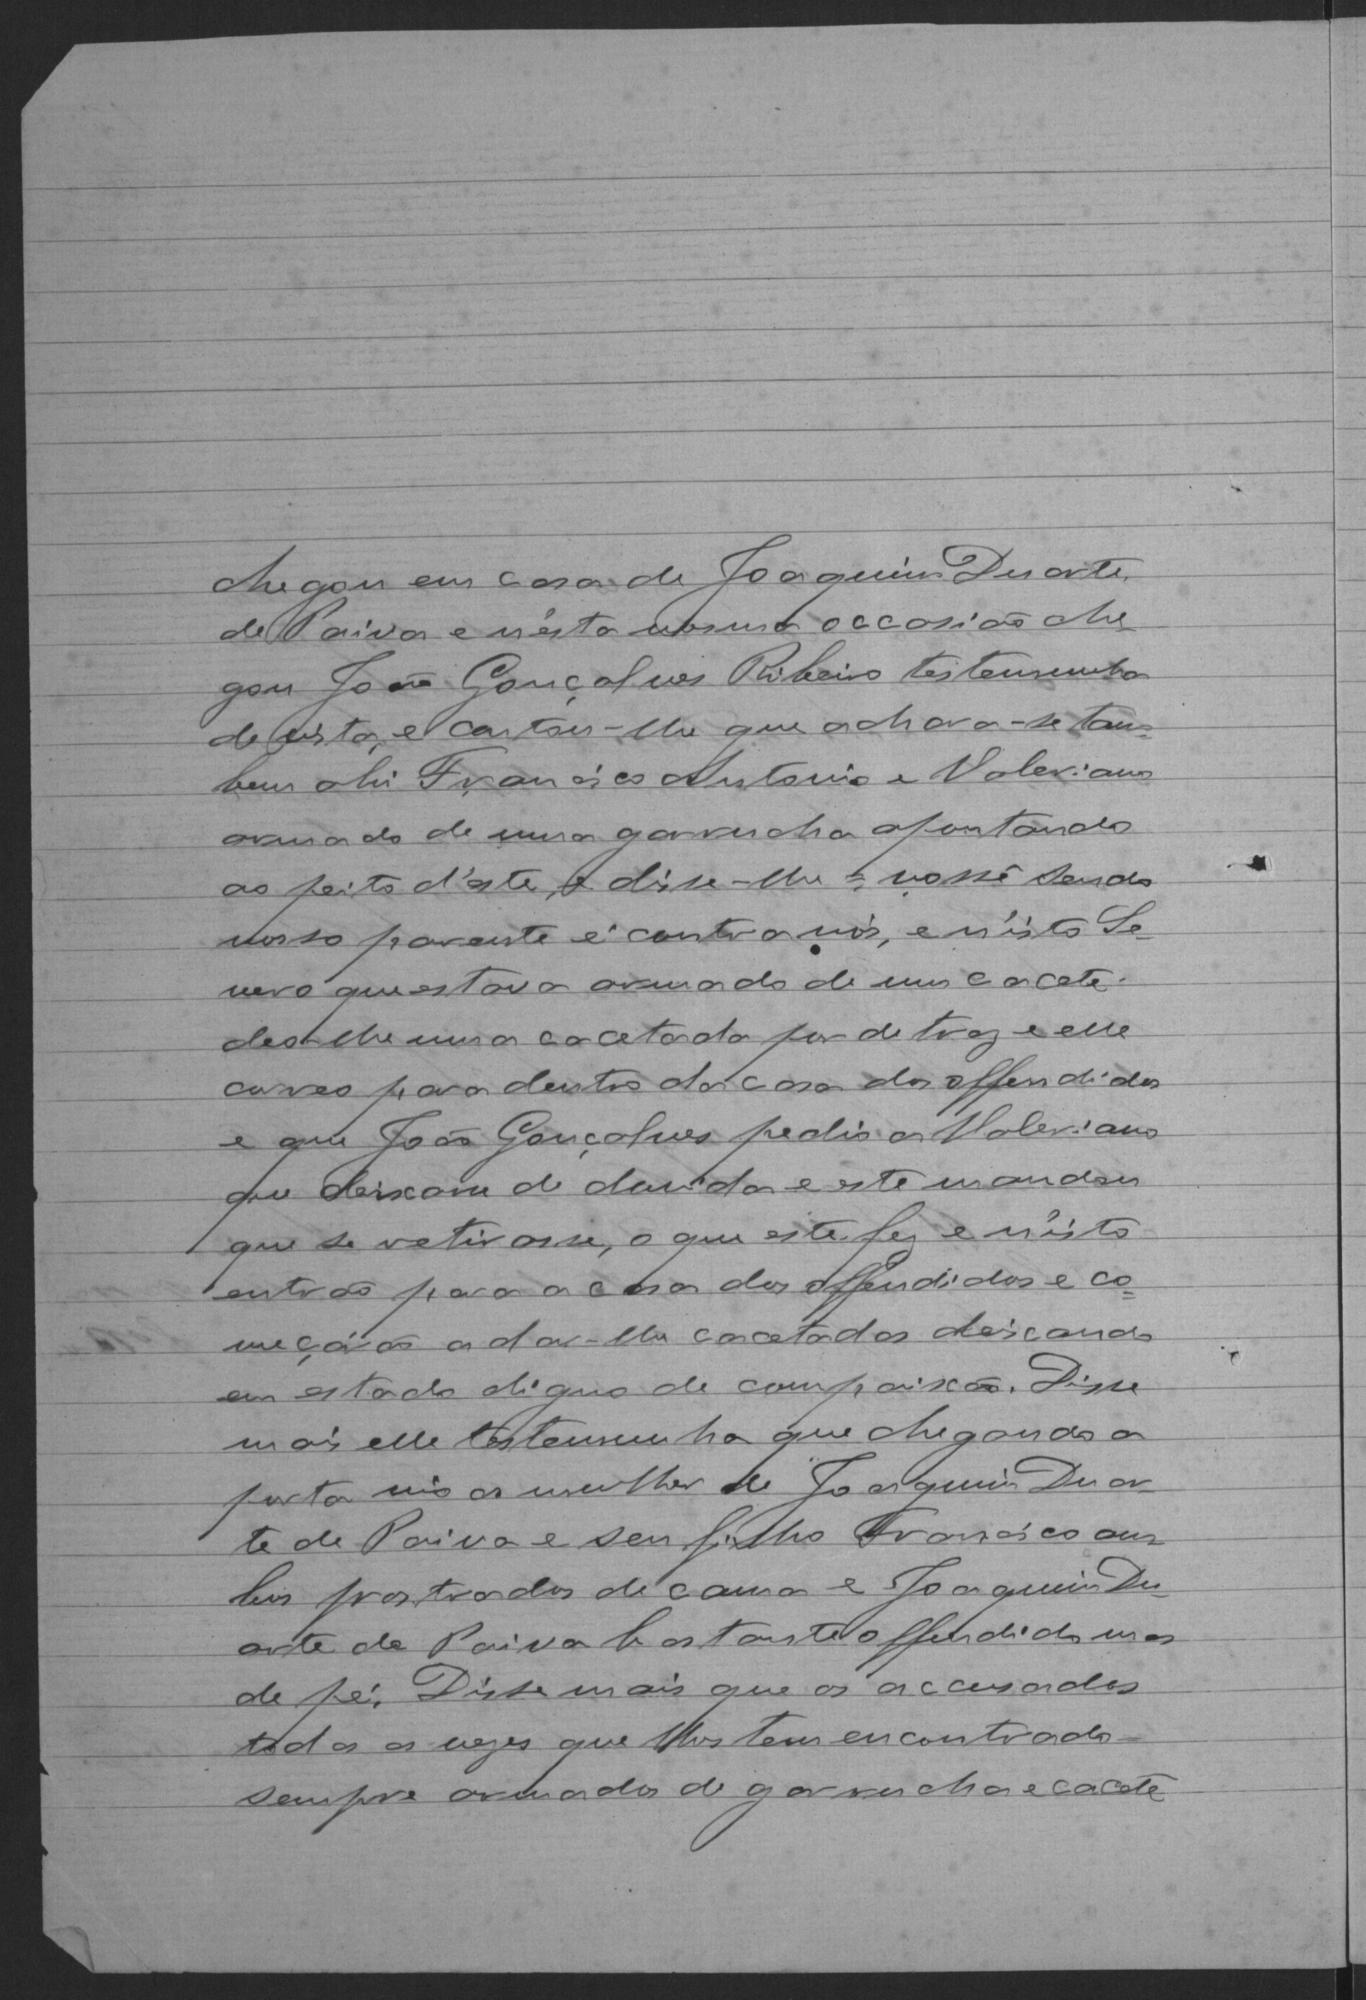 chegou em casa de Joaquim Duarte
de Paiva e n'ésta mesma occasião che-
gou João Gonçalves Ribeiro testemunha
de vista, e contou-lhe que achava-se tam=
bem ahi Francisco Antonio e Valeriano
armado de uma garrucha apontando
ao peito d'este, e disse-lhe = vossê sendo
nosso parente é contra nós, e n'isto Se-
vero que estava armado de um cacete
deo-lhe uma cacetada por detraz e elle
correo para dentro da casa dos offendidos
e que João Gonçalves pedio a Valeriano
que deixase de duvida e este mandou
que se retirasse, o que este fez e n'isto
entrão para a casa dos offendidos e co=
meçárão a dar-lhe cacetadas deixando
em estado digno de compaixão. Disse
mais elle testemunha que chegando a
porta vio a mulher de Joaquim Duar-
te de Paiva e seu filho Francisco am-
bos prostrados de cama e Joaquim Du-
arte de Paiva bastante offendido mas
de pé. Disse mais que os accusados
toda as vezes que lhos tem encontrado
sempre armados de garrucha e cacete